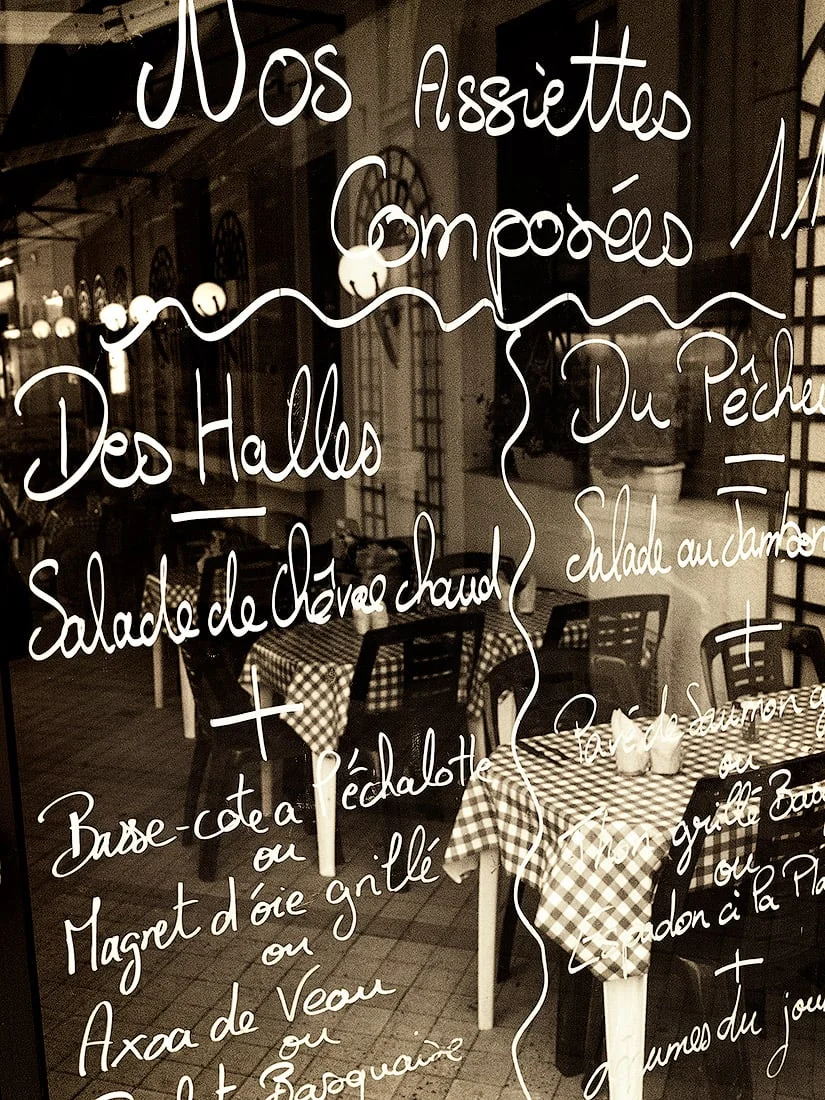 Nos Assiettes
Composées 11
Des Halles
Salade de Chèvre chaud
+
Basse-cote a l'échalotte
ou
Magret d'oie grillé
ou
Axoa de Veau
ou
Basquaise
Du Pêcheu
Salade au Jambon
+
Pavé de Saumon
ou
Thon grillé
ou
Espadon à la Pla
+
légumes du jour